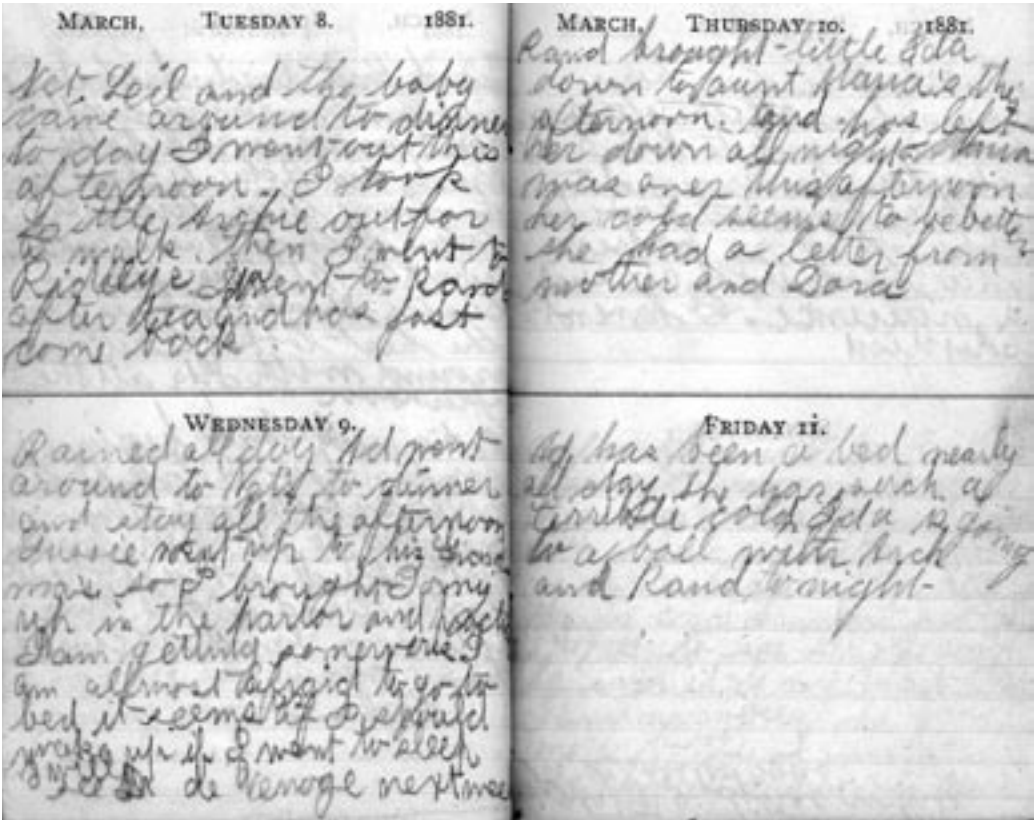 MARCH, TUESDAY 8. 1881.
Nat Leil and the baby
came around to dinner
to day I went out this
afternoon. I took
little Archie out for
a walk. then I went to
I went to Rand
after tea and has just
come back
WEDNESDAY 9.
Rained all day Ad went
around to Nat's to dinner
and stay all the afternoon
went up to his
so I brought
up in the parlor and
I am getting so nervous I
am allmost afraid to go to
bed it seems as if I should
wake up if I went to sleep
de Venoge next
MARCH, THURSDAY 10. 1881.
Rand brought little Ida
down to aunt Maria's this
afternoon. and has left
her down all night
was over this afternoon
her cold seems to be better
she had a letter from
mother and Dora
FRIDAY 11.
Ad has been a bed nearly
all day she has such a
terrible cold Ida is going
to a ball with Arch
and Rand to night-